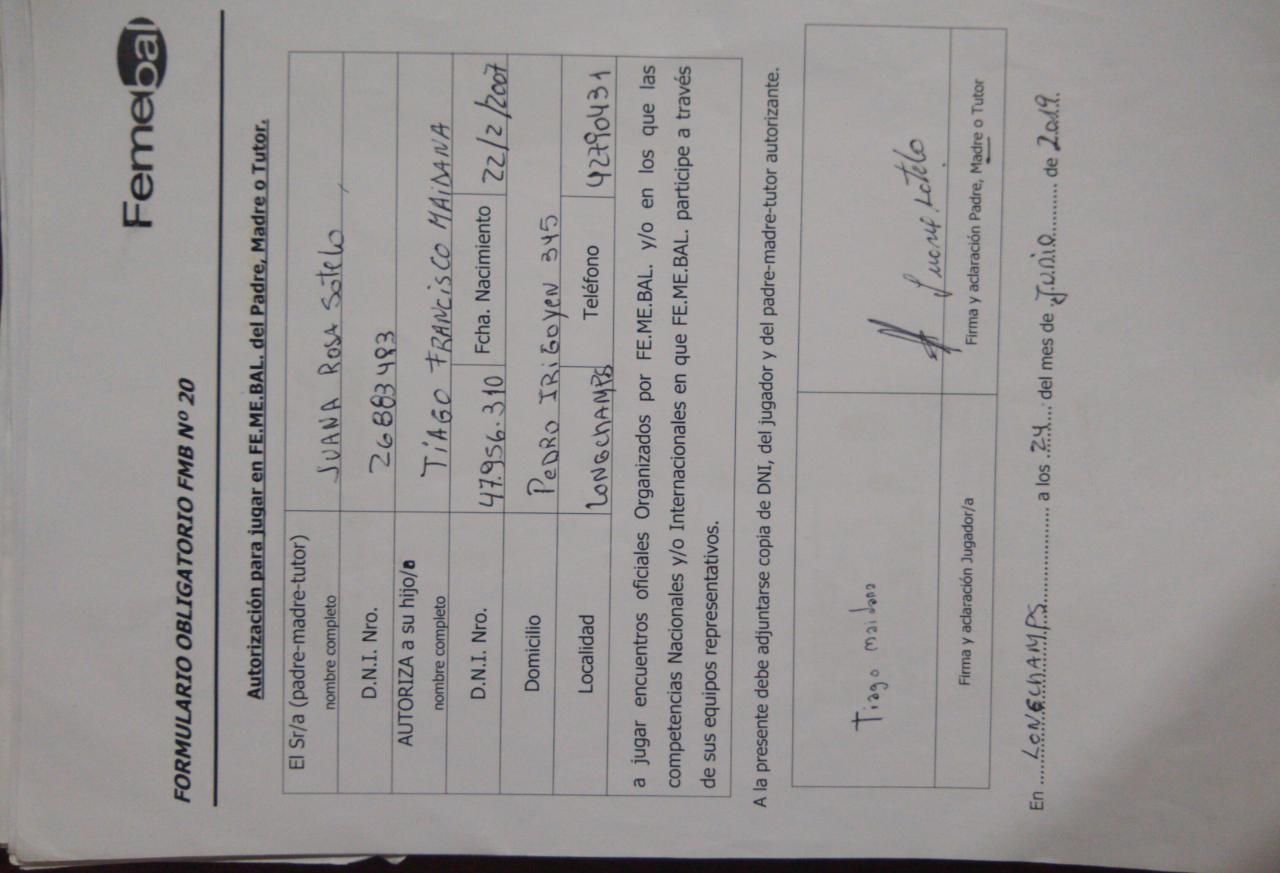 Femebal
FORMULARIO OBLIGATORIO FMB Nº 20
Autorización para jugar en FE.ME.BAL. del Padre, Madre o Tutor.
El Sr/a (padre-madre-tutor)
nombre completo
JUANA ROSA Sotelo
D.N.I. Nro.
26883483
AUTORIZA a su hijo/a
nombre completo
TiAGO FRANCISCO MAiDANA
D.N.I. Nro.
47.956.310
Fcha. Nacimiento
22/2/2007
Domicilio
PeDRO IRiGOYEN 345
Localidad
LONGCHAMPS
Teléfono
42790431
a jugar encuentros oficiales Organizados por FE.ME.BAL. y/o en los que las
competencias Nacionales y/o Internacionales en que FE.ME.BAL. participe a través
de sus equipos representativos.
A la presente debe adjuntarse copia de DNI, del jugador y del padre-madre-tutor autorizante.
Tiago maidana
Firma y aclaración Jugador/a
Firma y aclaración Padre, Madre o Tutor
En ....LONGCHAMPS.................... a los .24.... del mes de .Junio.......... de 2019.